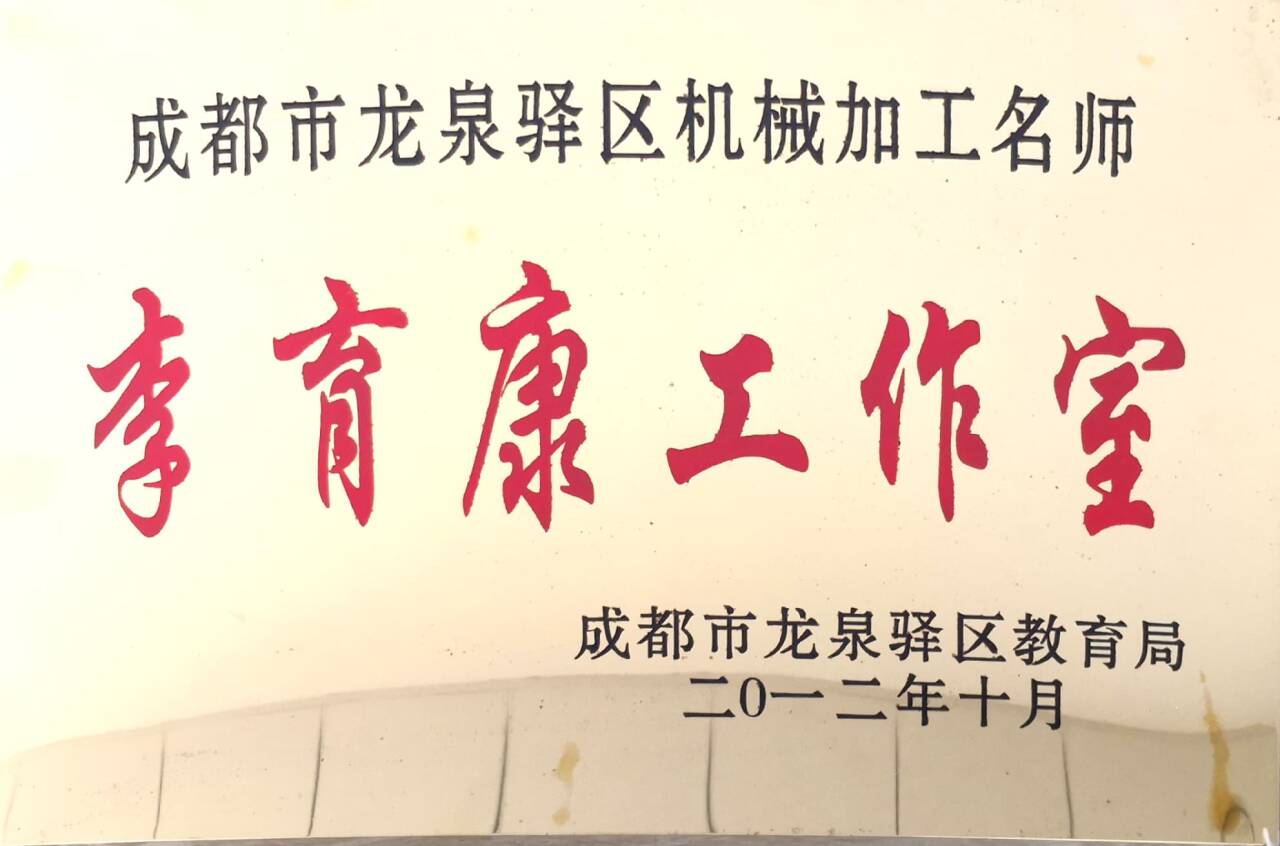 成都市龙泉驿区机械加工名师
李育康工作室
成都市龙泉驿区教育局
二0一二年十月